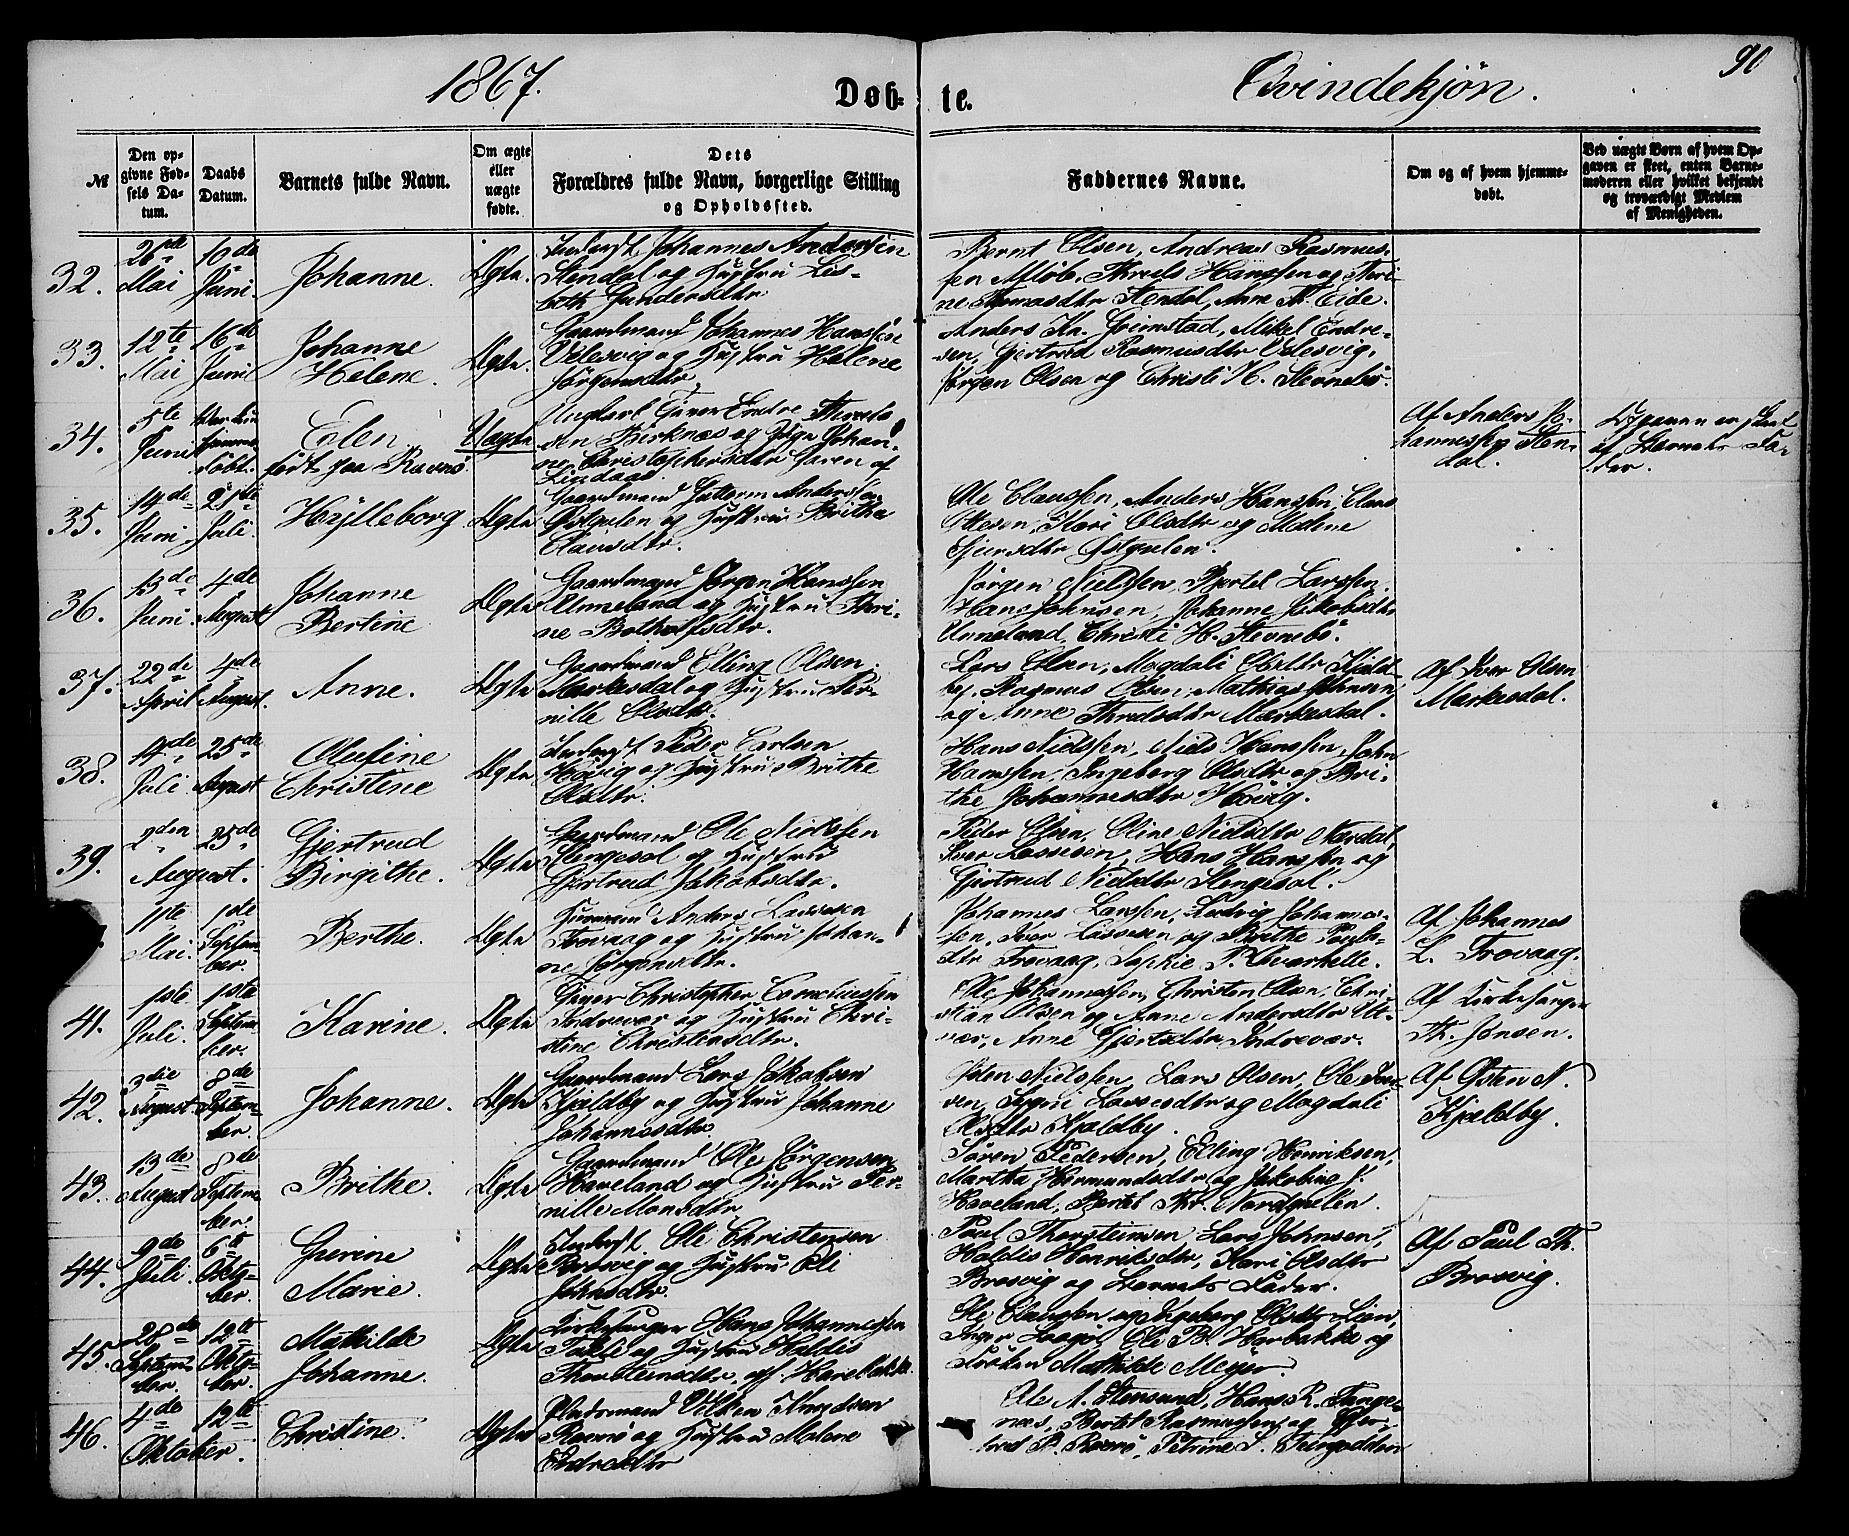 1867.
Døb-
te.
Qvindekjøn.
90
№
Den op-
givne Fød-
sels Da-
tum.
Daabs
Datum.
Barnets fulde Navn.
Om ægte
eller
uægte
fødte.
Dets
Forældres fulde Navn, borgerlige Stilling
og Opholdssted.
Faddernes Navne.
Om og af hvem hjemme-
døbt.
Ved uægte Børn af hvem Op-
gaven er skeet, enten Barne-
moderen eller hvilket bekjendt
og troværdigt Medlem
af Menigheden.
32.
26de
Mai
10de
Juni.
Johanne.
Ægte.
Inderst Johannes Andersen
Stendal og Hustru Lis-
beth Gundersdtr
Bernt Olsen, Andreas Rasmus-
sen Afløb, Thrreds Hanssen og Thri-
ne Thomasdtr Stendal, Anne A. Eide.
33.
12te
Mai
16de
Juni
Johanne
Helene.
Ægte.
Gaardmand Johannes Hanssen
Vilesvig og Hustru Helene
Jørgensdtr.
Anders Kn. Grimstad, Mikel Endre-
sen, Gjertrud Rasmusdtr Vilesvig,
Jørgen Olsen og Christi H. Stevnebø.
34.
5te
Juni
hjemme-
døbt.
Elen
født paa Ravnø
Uægte
Ungkarl Endre
sen Birknæs og Pige Johan-
ne Christophersdtr Garen af
Lindaas.
Af Anders Jo-
hannessen Sten-
dal.
Opgaven er skeet
af Barnets Fa-
der.
35.
14de
Juni.
21de
Juli.
Hylleborg
Ægte
Gaardmand Guttorm Anderssen
Østgulen og Hustru Brithe
Clausdtr.
Ole Claussen, Anders Hanssen, Claus
Olesen, Kari Olsdtr og Malene
Sjursdtr Østgulen.
36.
13de
Juni.
4de
August
Johanne
Bertine
Ægte
Gaardmand Jørgen Hanssen
Unneland og Hustru Thri-
ne Botholfsdtr.
Jørgen Nielssen, Bertel Larssen,
Hans Johnsen, Johanne Jakobsdtr
Unneland, Christi H. Stevnebø.
37.
22de
April
4de
August.
Anne.
Ægte
Gaardmand Elling Olsen
Markesdal og Hustru Per-
nille Olsdtr.
Lars Olsen, Magdali Olsdtr Kjeld-
by, Rasmus Olsen, Mathias Johnsen
og Anne Thredsdtr Mærkesdal.
Af Iver Olsen
Mærkesdal.
38.
4de
Juli
25de
August
Olufine
Christine
Ægte
Inderst Peder Carlsen
Høvig og Hustru Brithe
Olsdtr.
Hans Nielssen, Niels Hanssen, John
Hanssen, Ingeborg Olsdtr og Bri-
the Johannesdtr Høvig.
39.
2den
25de
August.
Gjertrud
Birgithe.
Ægte
Gaardmand Ole Nielssen
Stengesol og Hustru
Gjertrud Jakobsdtr.
Peder Olsen, Oline Nielsdtr Nærdal,
Iver Lassesen, Hans Hanssen og
Gjertrud Nielsdtr Stengesol.
11te
Mai.
1ste
Septem-
ber.
Berthe.
Ægte
Husmand Anders Lassesen
Trovaag og Hustru Johan-
ne Jørgensdtr.
Johannes Larssen, Ludvig Johannes-
sen, Iver Lassesen og Brithe Pouls-
dtr Trovaag, Sophie P. Kværhelle.
Af Johannes
L. Trovaag.
41.
1ste
Juli.
1ste
Septem-
ber.
Karine.
Ægte
Gaver Christopher Corneliussen
Indrevær og Hustru Chri-
stine Christensdtr.
Ole Johannessen, Christen Olsen, Chri-
stian Olsen og Anne Andersdtr Ut-
vær, Anne Gjertsdtr Indrevær.
Af Kirkesanger
Th. Jonsen.
42.
3die
August
8de
Septem-
ber.
Johanne.
Ægte
Gaardmand Lars Jakobsen
Kjeldby og Hustru Johanne
Johannesdtr.
Østen Nielssen, Lars Olsen, Ole Iver-
sen, Sygni Lassesdtr og Magdali
Olsdtr Kjeldby.
Af Østen N.
Kjeldby.
43.
13de
August
8de
Septem-
ber.
Brithe.
Ægte
Gaardmand Ole Jørgensen
Haveland og Hustru Per-
nille Monsdtr
Søren Pedersen, Elling Henriksen,
Martha Hermundsdtr og Jakobine J.
Haveland, Bertel Kr. Nordgulen.
44.
9de
Juli
6te
Okto-
ber.
Gurine
Marie.
Ægte
Inderst Ole Christensen
Brosvig og Hustru Eli
Johnsdtr.
Paul Thorsteinsen, Lars Johnsen,
Haldis Henriksdtr, Kari Olsdtr
Brosvig og Barnets Fader.
Af Paul Th.
Brosvig.
45.
28de
Septem-
ber.
12te
Okto-
ber.
Mathilde
Johanne.
Ægte
Kirkesanger Hans Johannessen
Takle og Hustru Haldis
Thorsteinsdtr.
Ole Claussen og Ingeborg Olsdtr Lien,
Inger, Eli B. Hærbakke og
Frøken Mathilde Meyer.
46.
4de
12te
Oktober.
Christine.
Ægte
Pladsmand Villken Knudsen
Ravnø og Hustru Malene
Endresdtr
Ole A. Steensund, Hans R. Tange-
næs, Bertel Rasmussen og Gjer-
trud P. Ravnø, Petrine